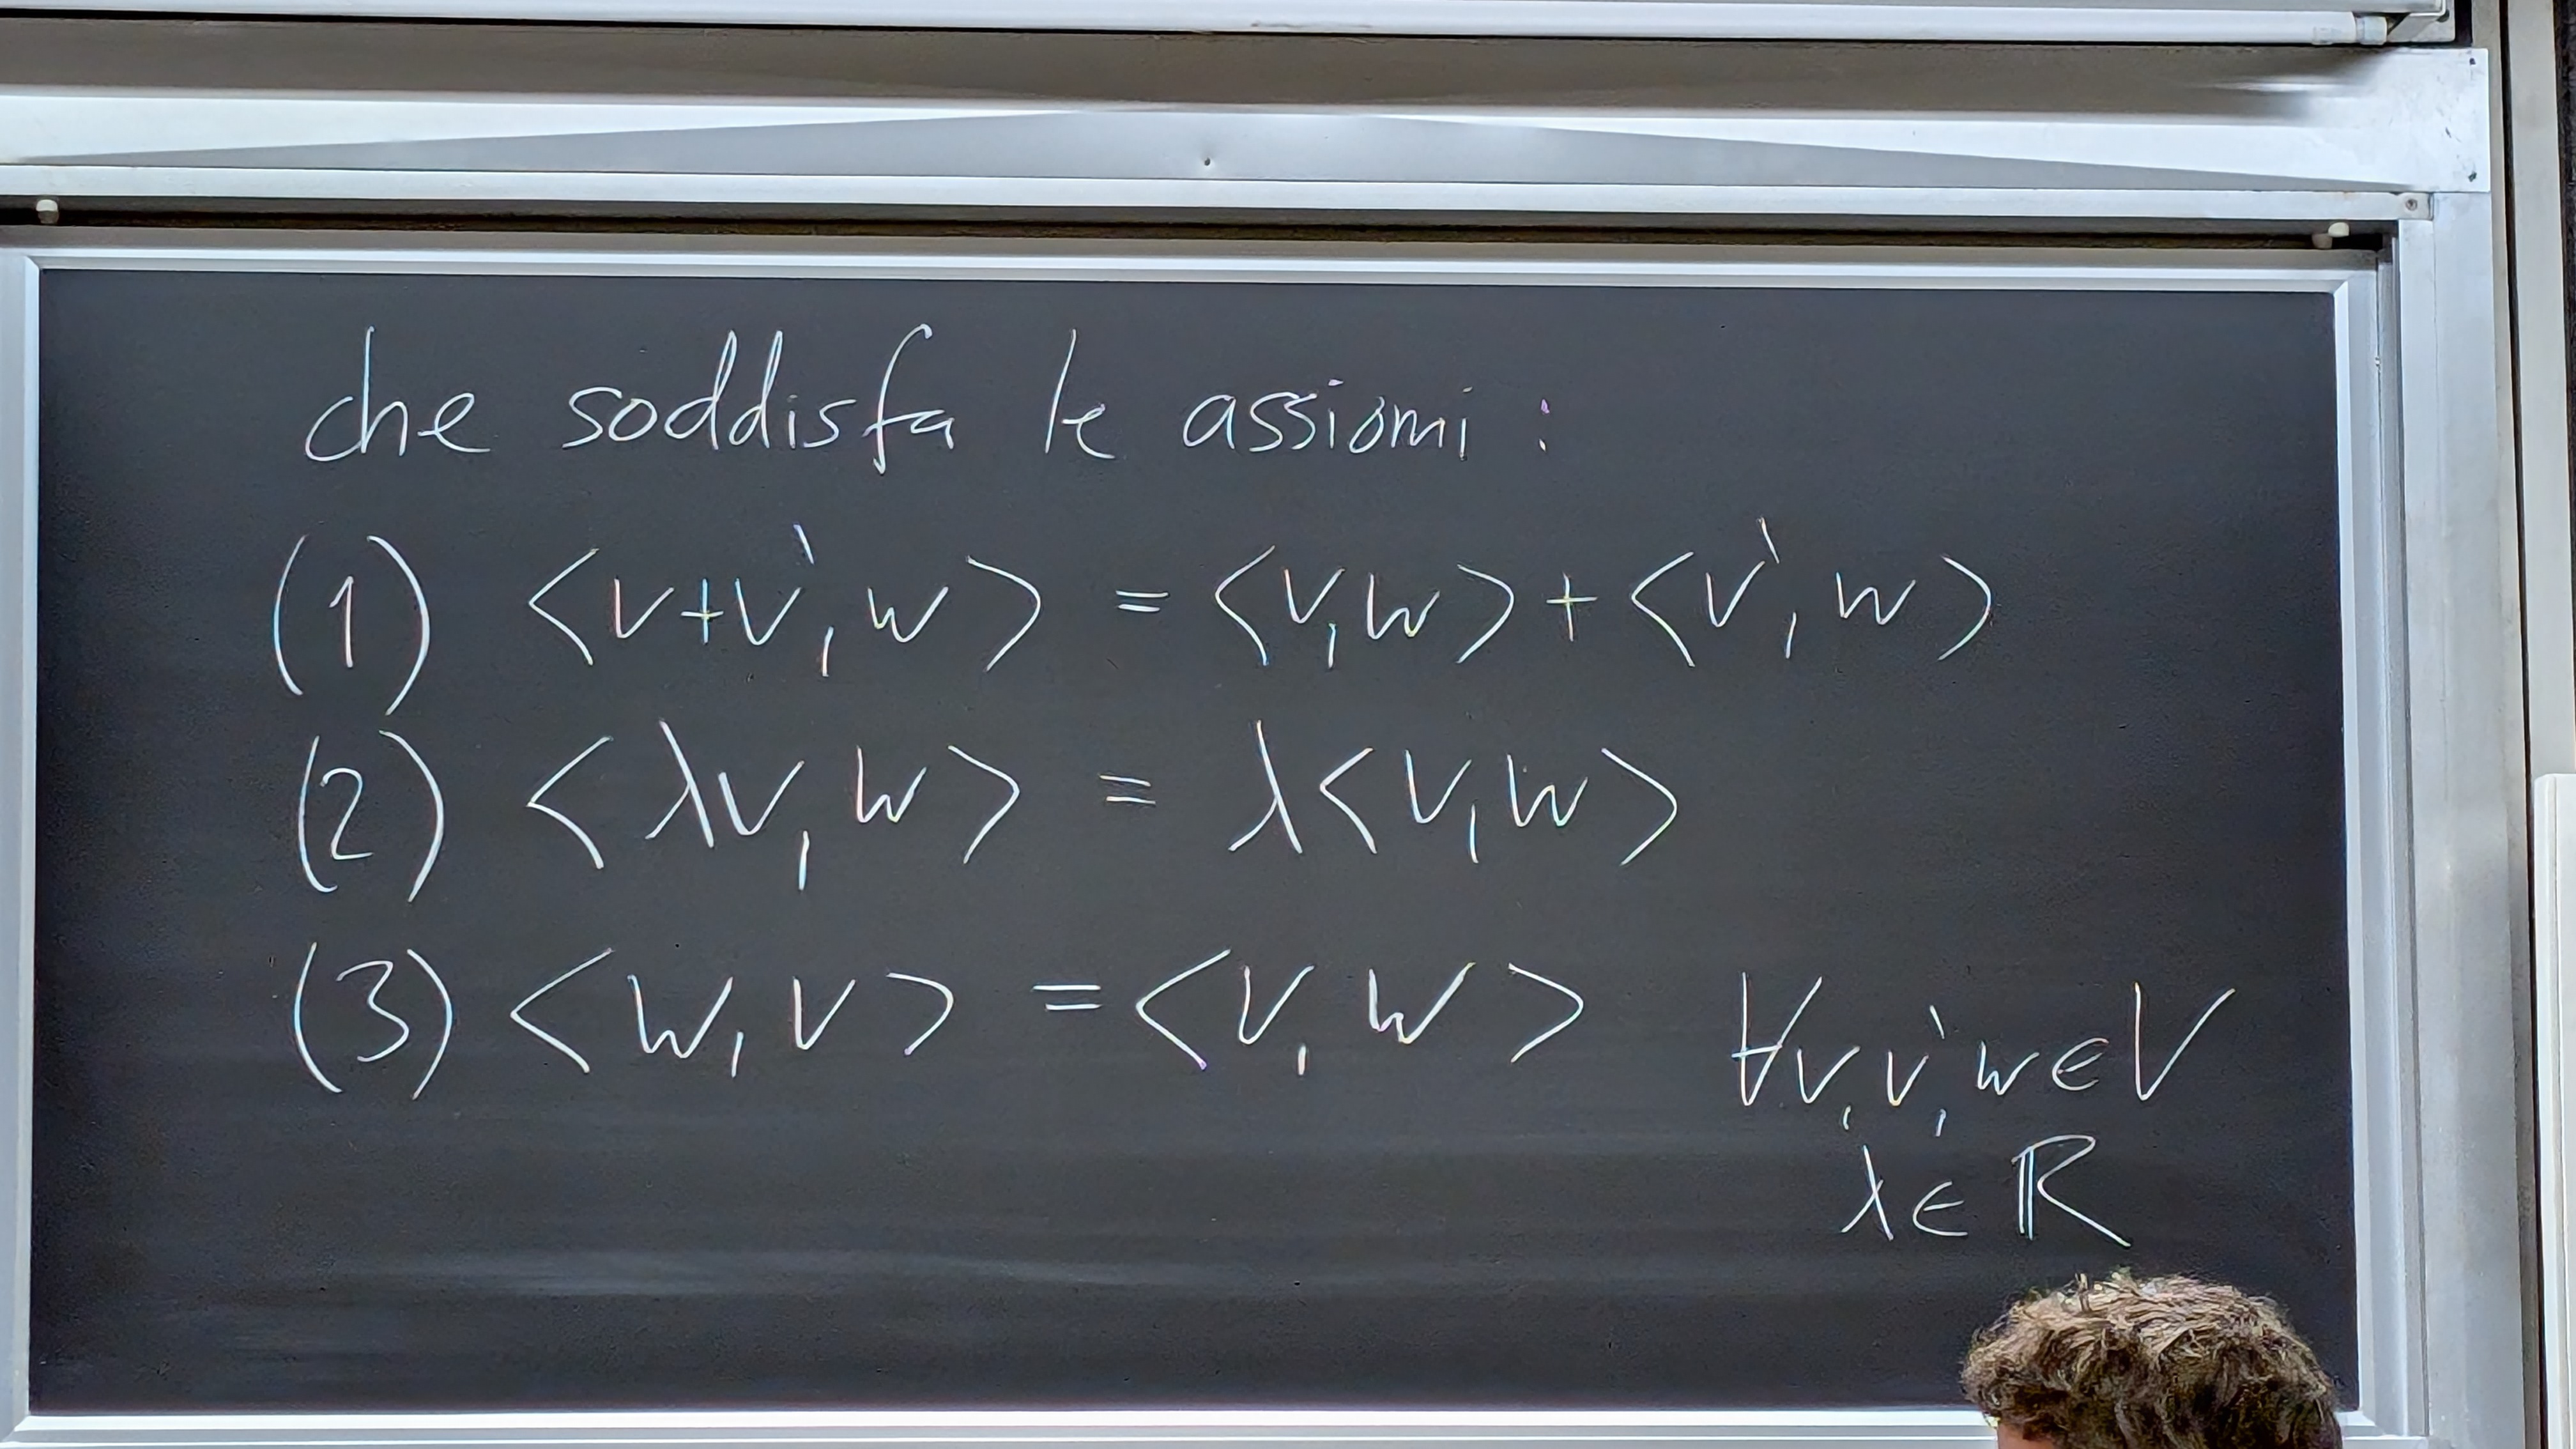 che soddisfa le assiomi :
(1) <v+v', w> = <v,w> + <v', w>
(2) <λv, w> = λ<v,w>
(3) <w, v> = <v, w>
∀v, v', w ∈ V
λ ∈ ℝ